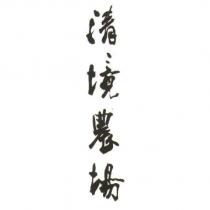 清境農場